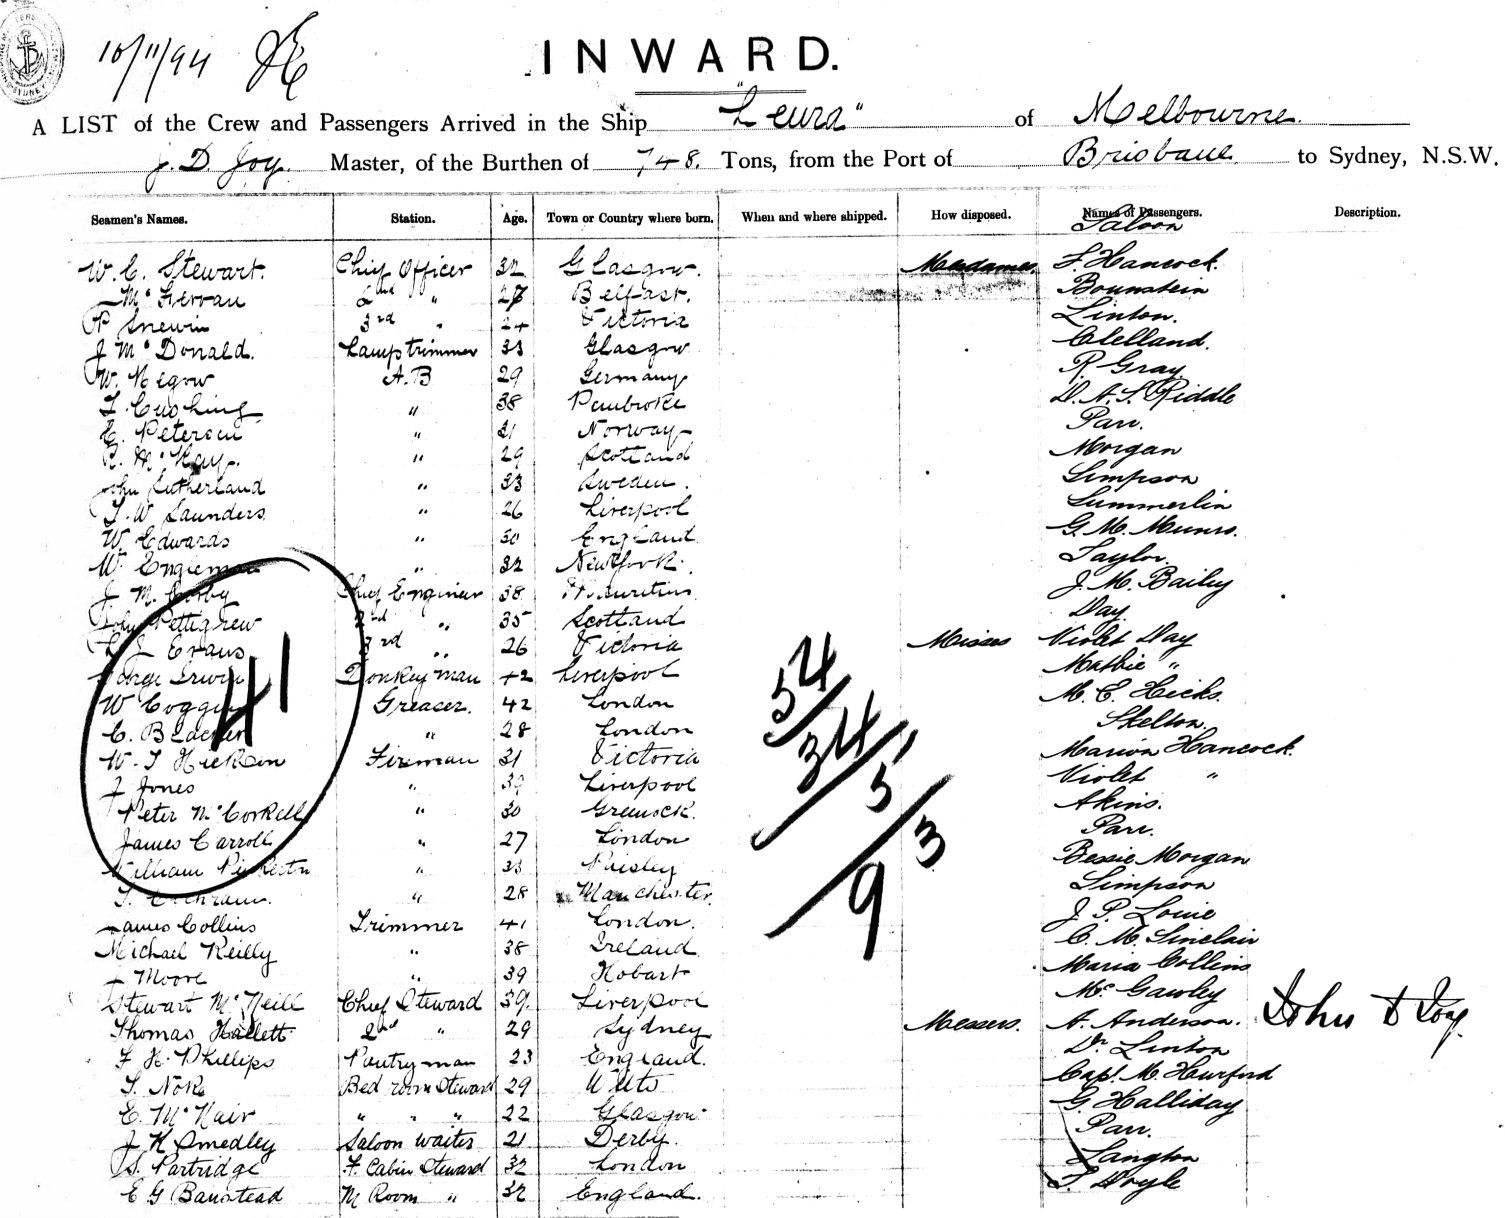 10/11/94
INWARD.
A LIST of the Crew and Passengers Arrived in the Ship "Leura" of Melbourne
J. D Joy. Master, of the Burthen of 748. Tons, from the Port of Brisbane to Sydney, N.S.W.
Seamen's Names. Station. Age. Town or Country where born. When and where shipped. How disposed. Names of Passengers. Description.
Saloon
W. C. Stewart. Chief Officer 32 Glasgow. Mesdames. F. Hancock.
2nd " Belfast. Bounstein
3rd " 24 Victoria Linton.
J McDonald. Lamptrimmer 33 Glasgow Clelland.
W. Negow A.B 29 Germany R Gray
T. Cushing " 38 Pembroke D. A. S. Riddle
C. Petersen " 21 Norway Parr.
R. McKay. " 29 Scotland Morgan
John Sutherland " 33 Sweden. Simpson
T. W Saunders " 26 Liverpool Summerlin
W. Edwards " 30 England G. M. Munro.
W. Engleman " 32 New York. Taylor.
J. M. Corby Chief Engineer 38 Mauritius J. M. Bailey
John Pettigrew 2nd " 35 Scotland Day
Evans 3rd " 26 Victoria Misses Violet Day
George Irwin Donkeyman 42 Liverpool Mabbie "
W Coggin Greaser. 42 London M. E. Hicks.
C. Blacker " 28 London Skelton
W. T Hickson Fireman 31 Victoria Marion Hancock.
J Jones " 39 Liverpool Violet "
Peter McCorkell " 30 Greenock. Akins.
James Carroll " 27 London Parr.
William Pinkerton " 33 Paisley Bessie Morgan
T. Cochrane. " 28 Manchester. Simpson
James Collins Trimmer 41 London. J. P. Louie
Michael Reilly " 38 Ireland C. M. Sinclair
J Moore " 39 Hobart Maria Collins
Stewart McNeill Chief Steward 39. Liverpool McGawley
Thomas Hallett 2nd " 29 Sydney Messers. A. Anderson. John D Joy.
F. H. Phillips Pantryman 23 England. Dr Linton
T. Noke Bed room Steward 29 Wilts Capt. M. Hurford
E. McNair " " " 22 Glasgow G. Halliday
J H Smedley Saloon waiter 21 Derby. Parr.
S. Partridge F. Cabin Steward 32 London Langton
E G Banstead M Room " 32 England. T. Hoyle
41
54
34
5
3
9